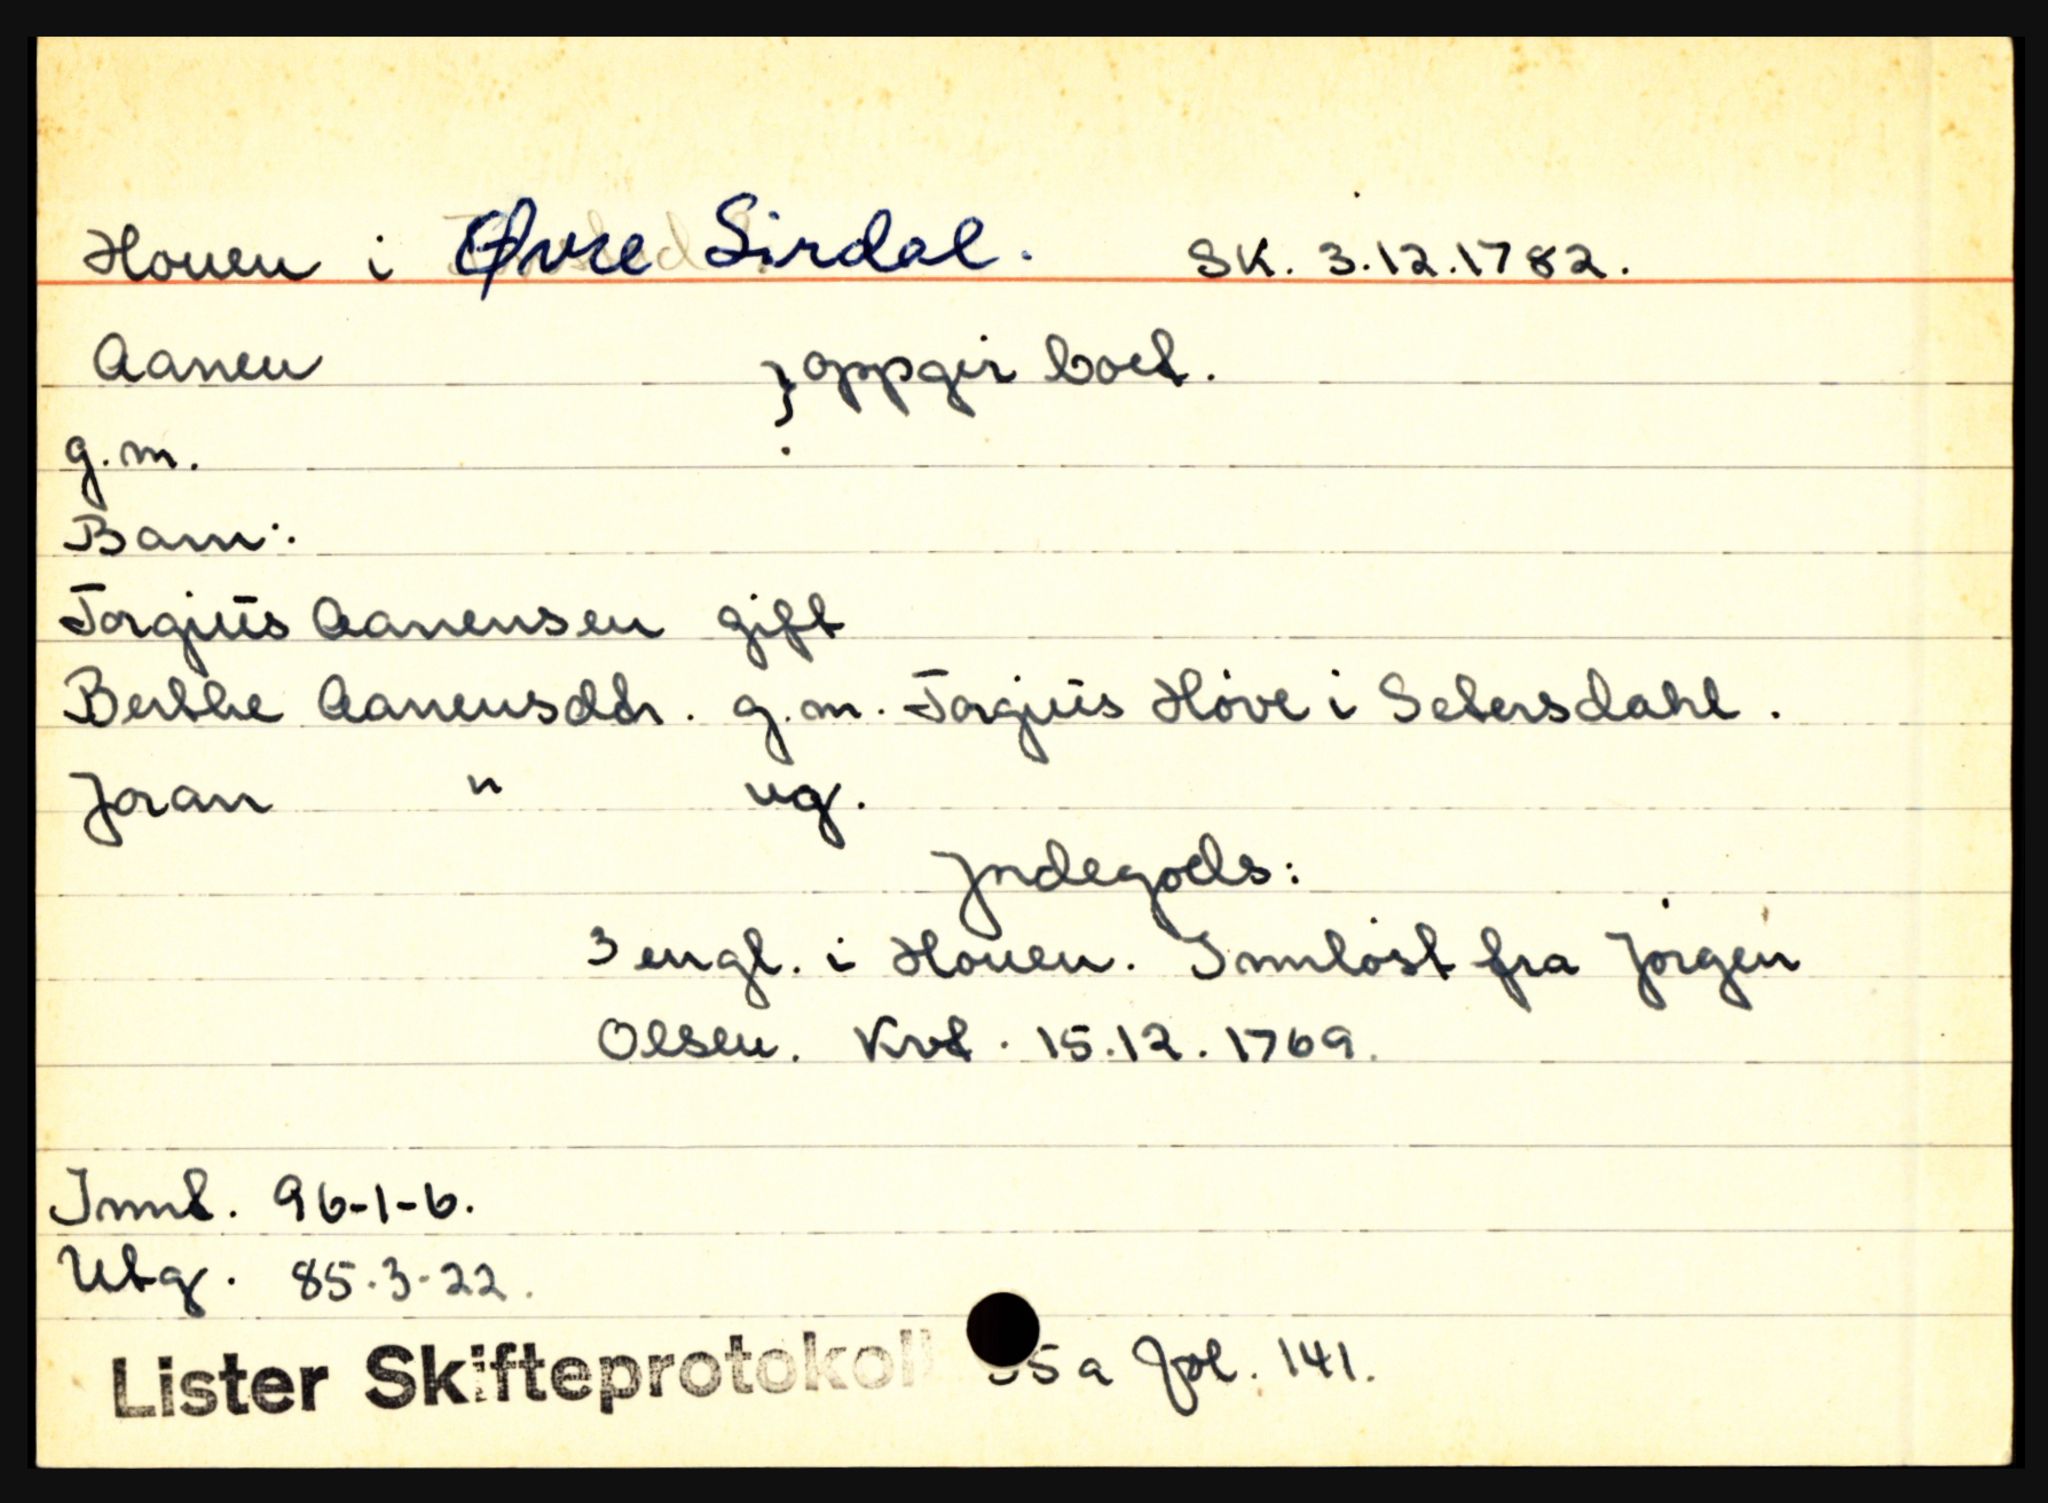 Houen i Øvre Sirdal. SK. 3.12.1782.
Aanen } oppgir boet.
g.m.
Barn:
Torgjus Aanensen gift
Berthe Aanensdtr. g.m. Torgjus Höve i Setersdahl.
Joran " ug.
Jordegods:
3 engl. i Houen. Innlöst fra Jörgen
Olsen. Kvt. 15.12.1769.
Innt. 96-1-6.
Utg. 85-3-22.
Lister Skifteprotokoll 5 a fol. 141.